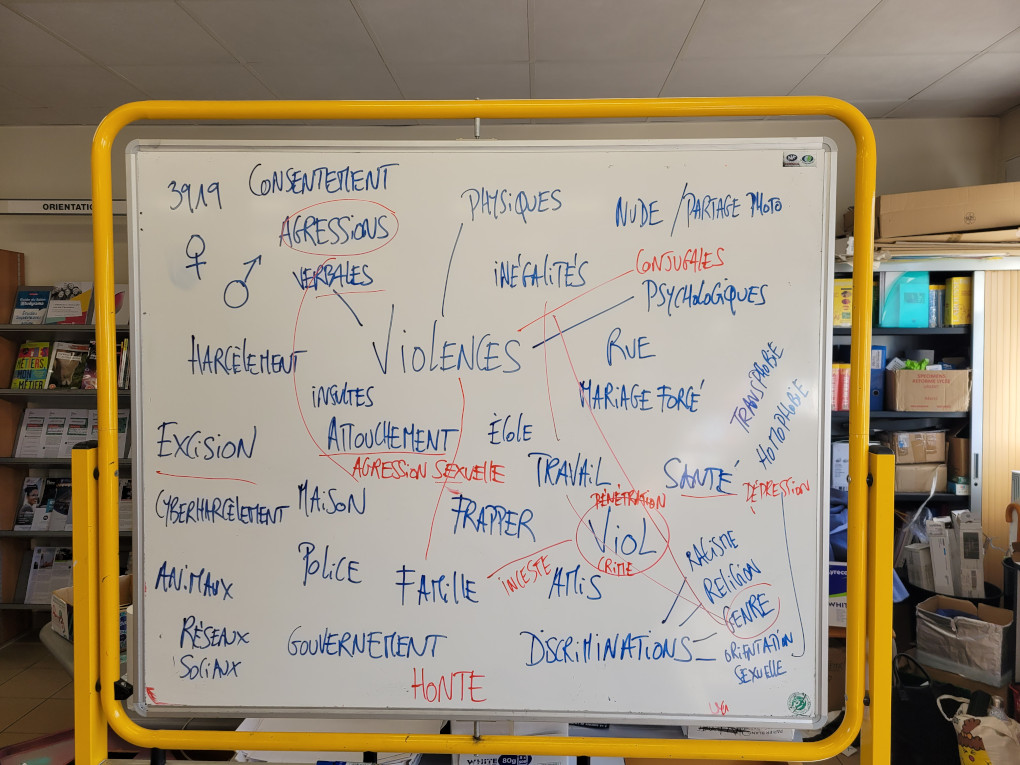 ORIENTATIO
3919
CONSENTEMENT
AGRESSIONS
VERBALES
PHYSIQUES
NUDE / PARTAGE PHOTO
♀
♂
INÉGALITÉS
CONJUGALES
PSYCHOLOGIQUES
HARCÈLEMENT
VIOLENCES
RUE
INSULTES
MARIAGE FORCÉ
TRANSPHOBIE
HOMOPHOBIE
EXCISION
ATTOUCHEMENT
ÉCOLE
AGRESSION SEXUELLE
TRAVAIL
SANTÉ
DÉPRESSION
CYBERHARCÈLEMENT
MAISON
FRAPPER
PÉNÉTRATION
VIOL
CRIME
RACISME
RELIGION
GENRE
ANIMAUX
POLICE
FAMILLE
INCESTE
AMIS
RÉSEAUX
SOCIAUX
GOUVERNEMENT
DISCRIMINATIONS
ORIENTATION
SEXUELLE
HONTE
MÉTIERS
MON
MÉTIER
WHITE 80g
WHIT